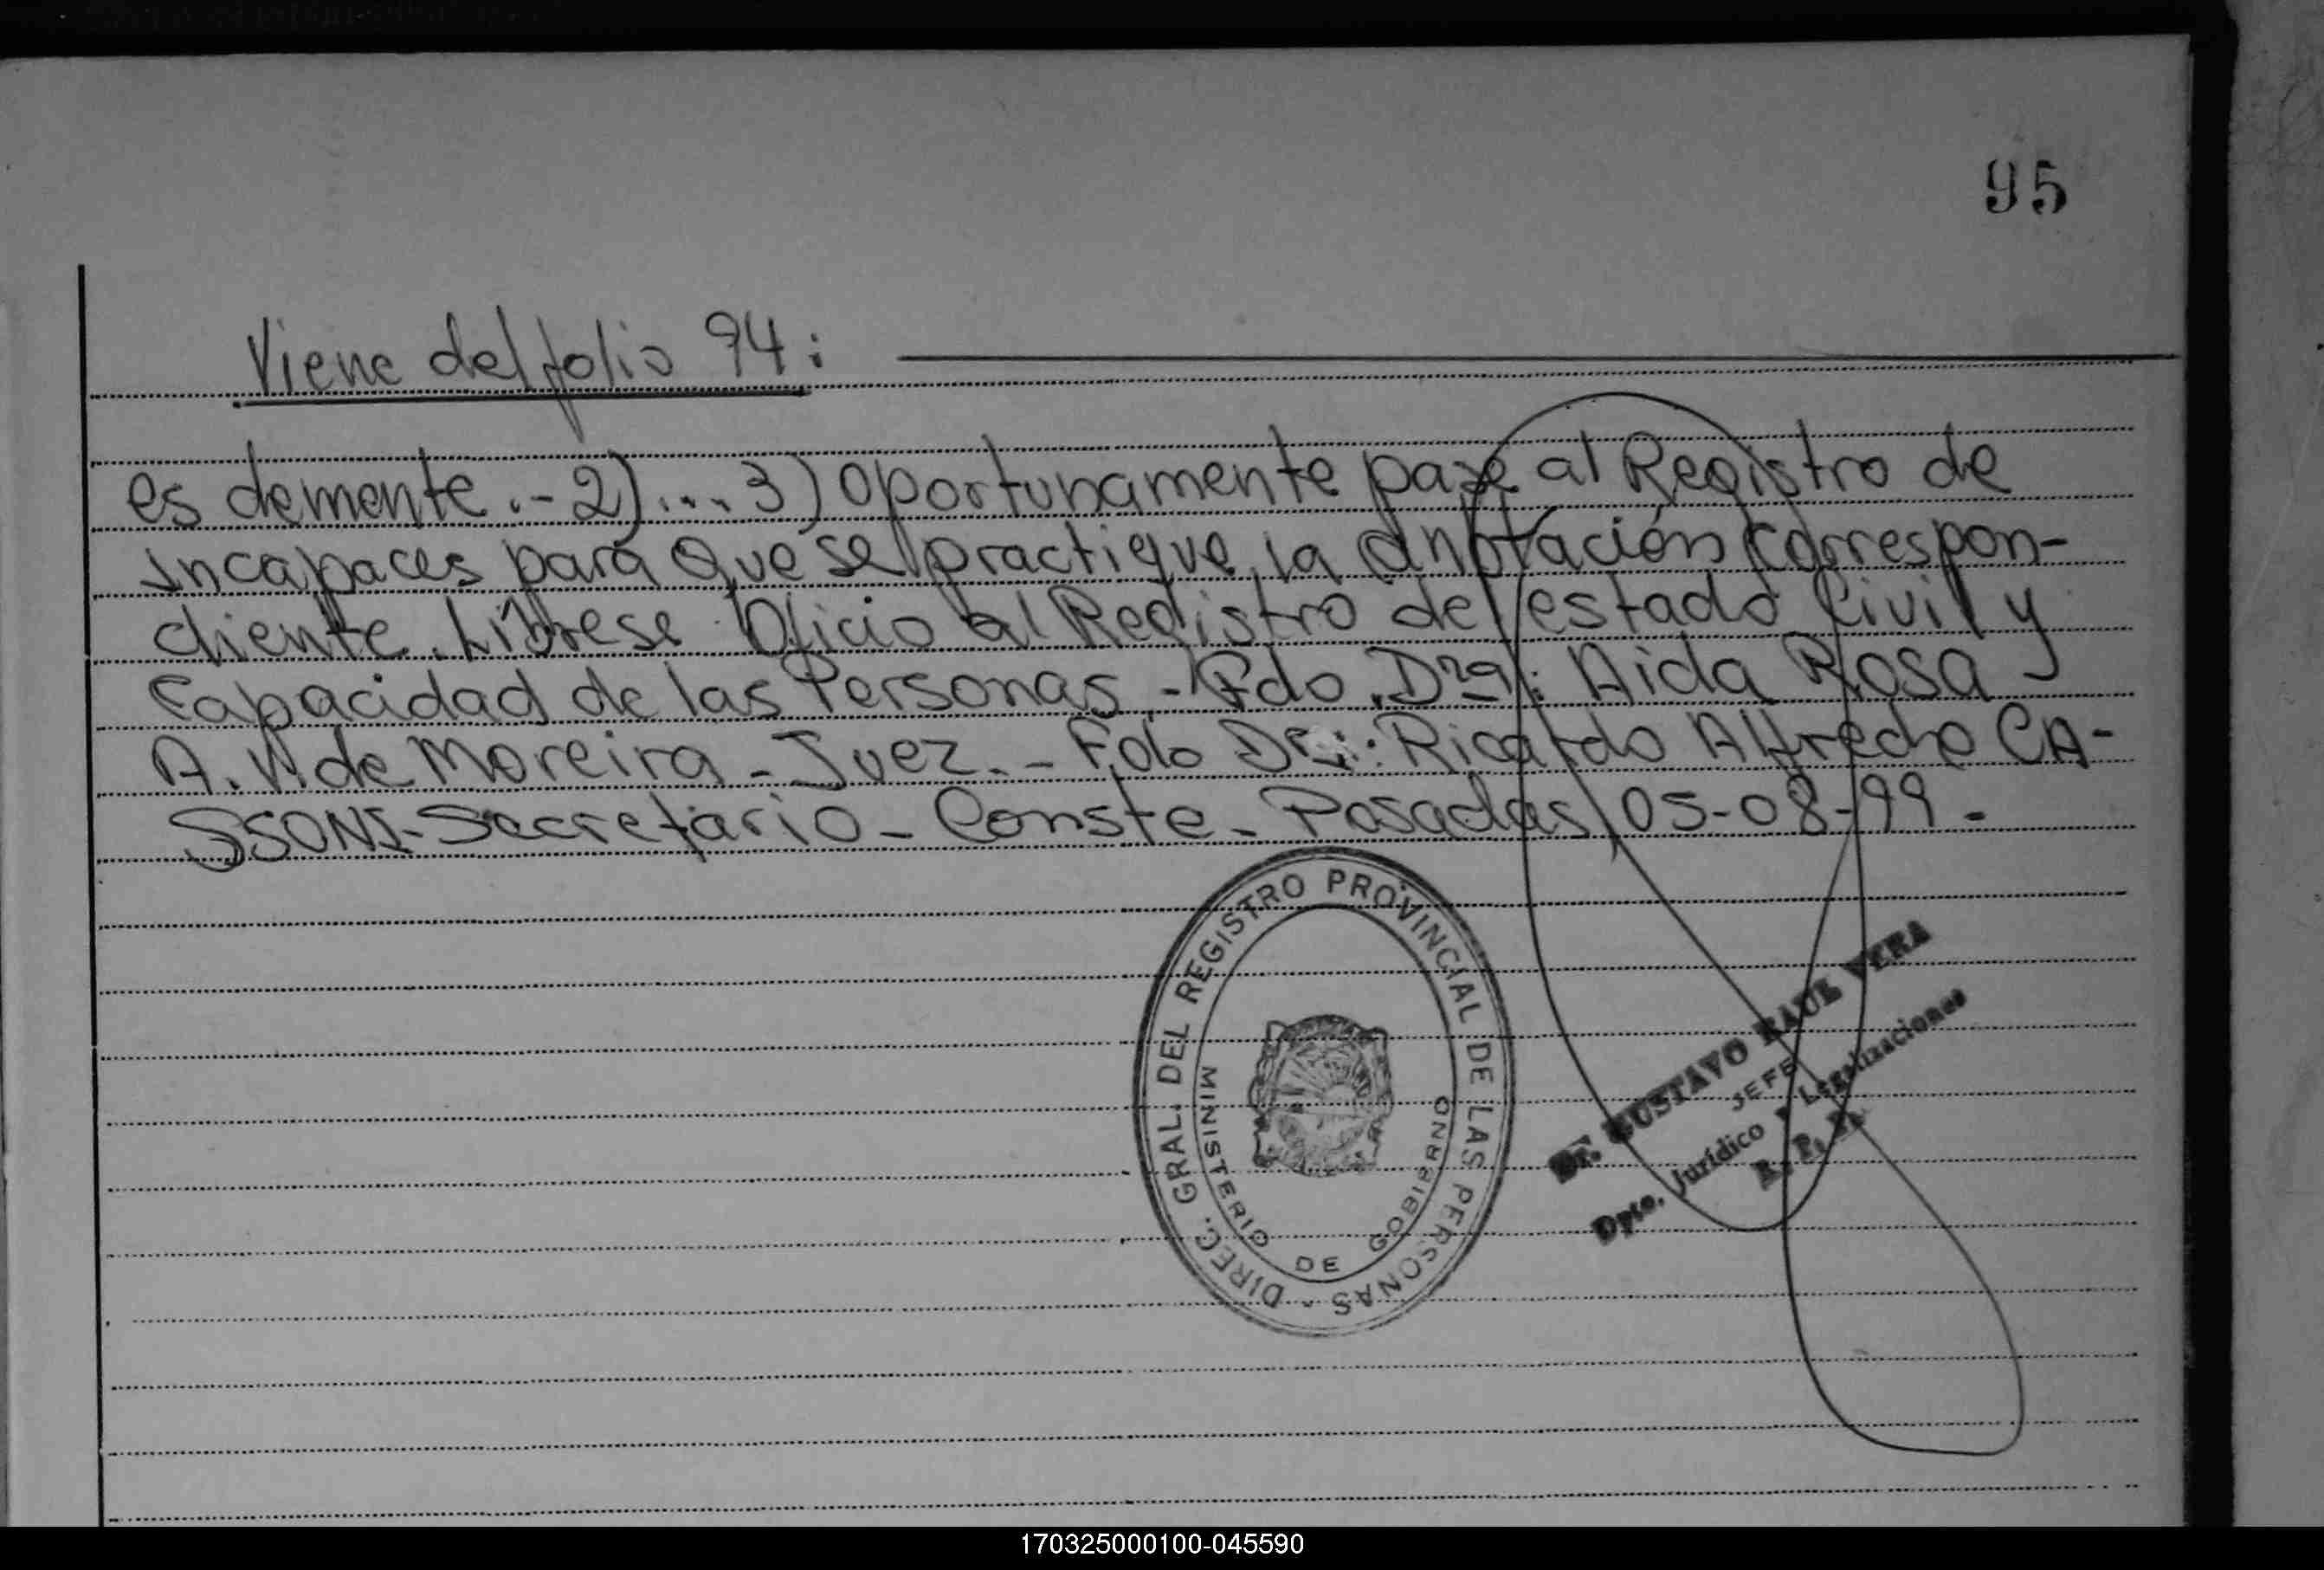 95
Viene del folio 94:
es demente.-2)... 3) oportunamente pase al Registro de
incapaces para que se practique la anotación correspon-
diente. Líbrese Oficio al Registro del estado Civil y
Capacidad de las Personas.- Fdo. Dra: Aida Rosa
A. V. de Moreira - Juez.- Fdo Dr.: Ricardo Alfredo CA-
SSONI-Secretario - Conste - Posadas 05-08-99.-
DIREC. GRAL. DEL REGISTRO PROVINCIAL DE LAS PERSONAS -
MINISTERIO DE GOBIERNO
Dr. GUSTAVO RAUL VERA
JEFE
Dpto. Jurídico y Legalizaciones
R. P. P.
170325000100-045590